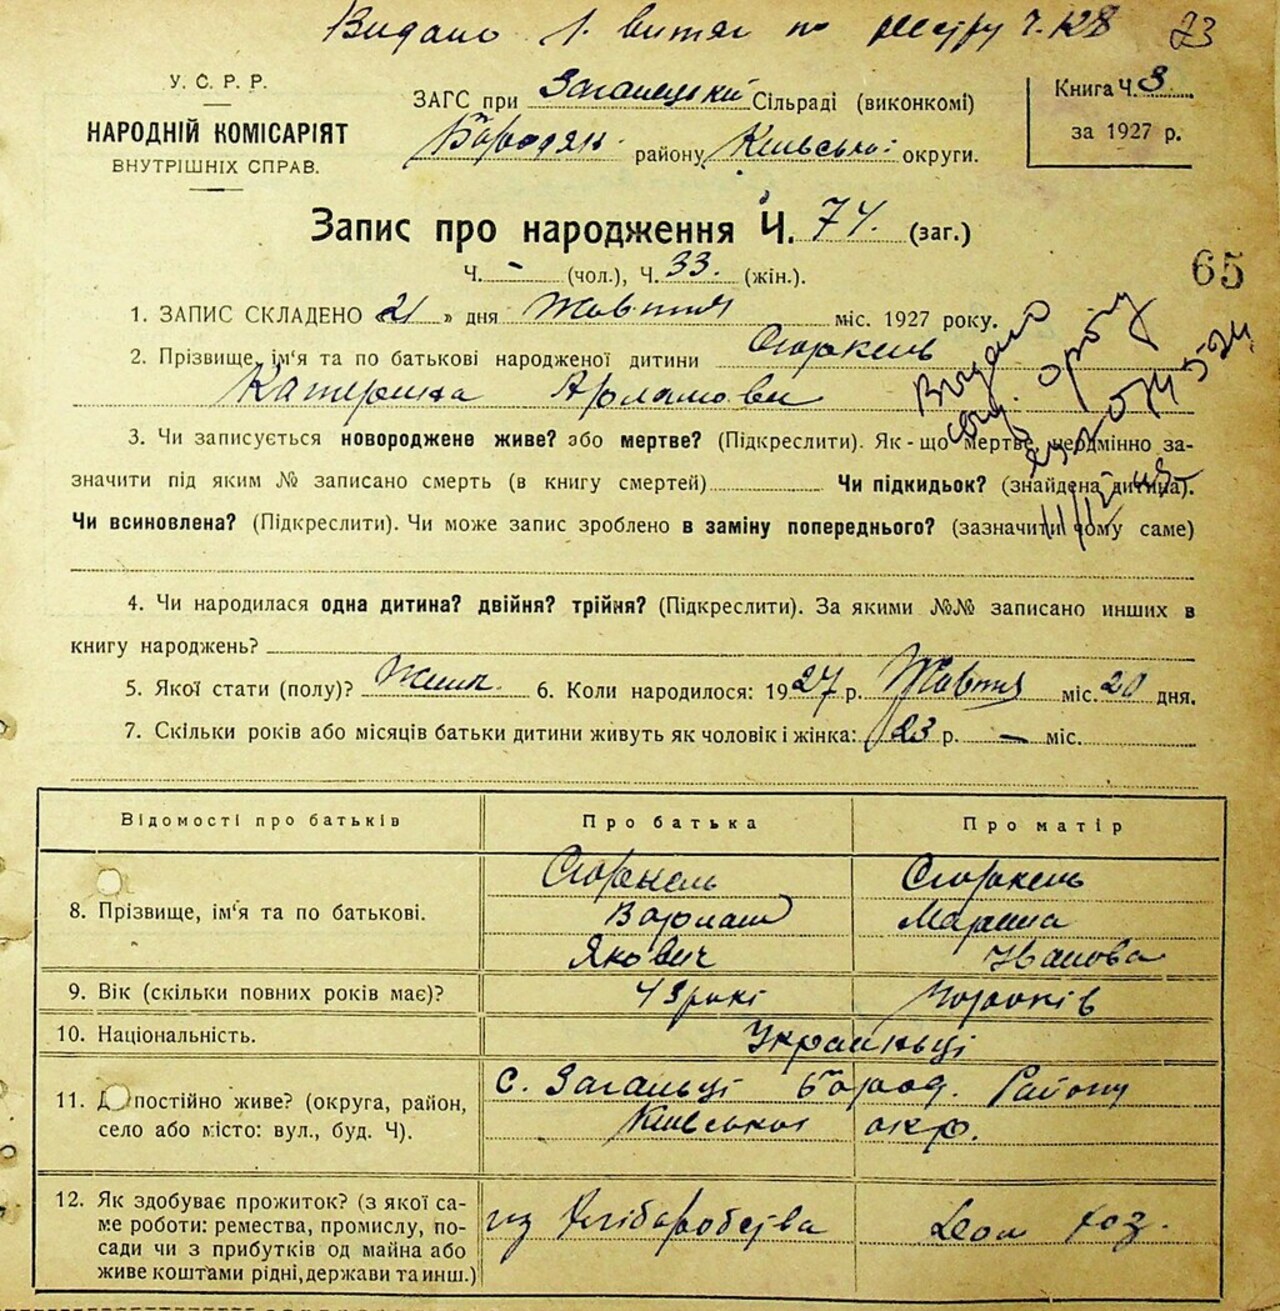 Видано 1. витяг по реєстру Ч. 128 73
У. С. Р. Р.
НАРОДНІЙ КОМІСАРІЯТ
ВНУТРІШНІХ СПРАВ.
ЗАГС при Загалецькій Сільраді (виконкомі)
Бородян. району Київської округи.
Книга Ч. 3
за 1927 р.
Запис про народження Ч. 74. (заг.)
Ч. - (чол.), Ч. 33. (жін.).
65
1. ЗАПИС СКЛАДЕНО „21" » дня Жовтня міс. 1927 року.
2. Прізвище, ім'я та по батькові народженої дитини
Катерина Варламови
Видано
3. Чи записується новороджене живе? або мертве? (Підкреслити). Як-що мертве, неодмінно за-
значити під яким № записано смерть (в книгу смертей) Чи підкидьок? (знайдена дитина).
Чи всиновлена? (Підкреслити). Чи може запис зроблено в заміну попереднього? (зазначити чому саме)
4. Чи народилася одна дитина? двійня? трійня? (Підкреслити). За якими №№ записано инших в
книгу народжень?
5. Якої стати (полу)? Жіноч. 6. Коли народилося: 1927 р. Жовтня міс. 20 дня.
7. Скільки років або місяців батьки дитини живуть як чоловік і жінка: 23 р. — міс.
Відомості про батьків Про батька Про матір
8. Прізвище, ім'я та по батькові.
Варлам Марина
Якович Іванова
9. Вік (скільки повних років має)? 43 роки
10. Національність. Українці
11. Де постійно живе? (округа, район,
село або місто: вул., буд. Ч).
с. Загальці Бород. Району
Київської окр.
12. Як здобуває прожиток? (з якої са-
ме роботи: ремества, промислу, по-
сади чи з прибутків од майна або
живе коштами рідні, держави та инш.)
из Хліборобства Дом хоз.